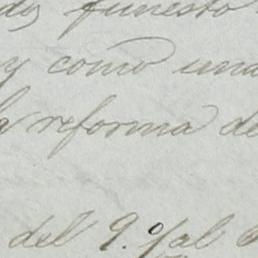 funesto
y como una
reforma de
del 9.º al